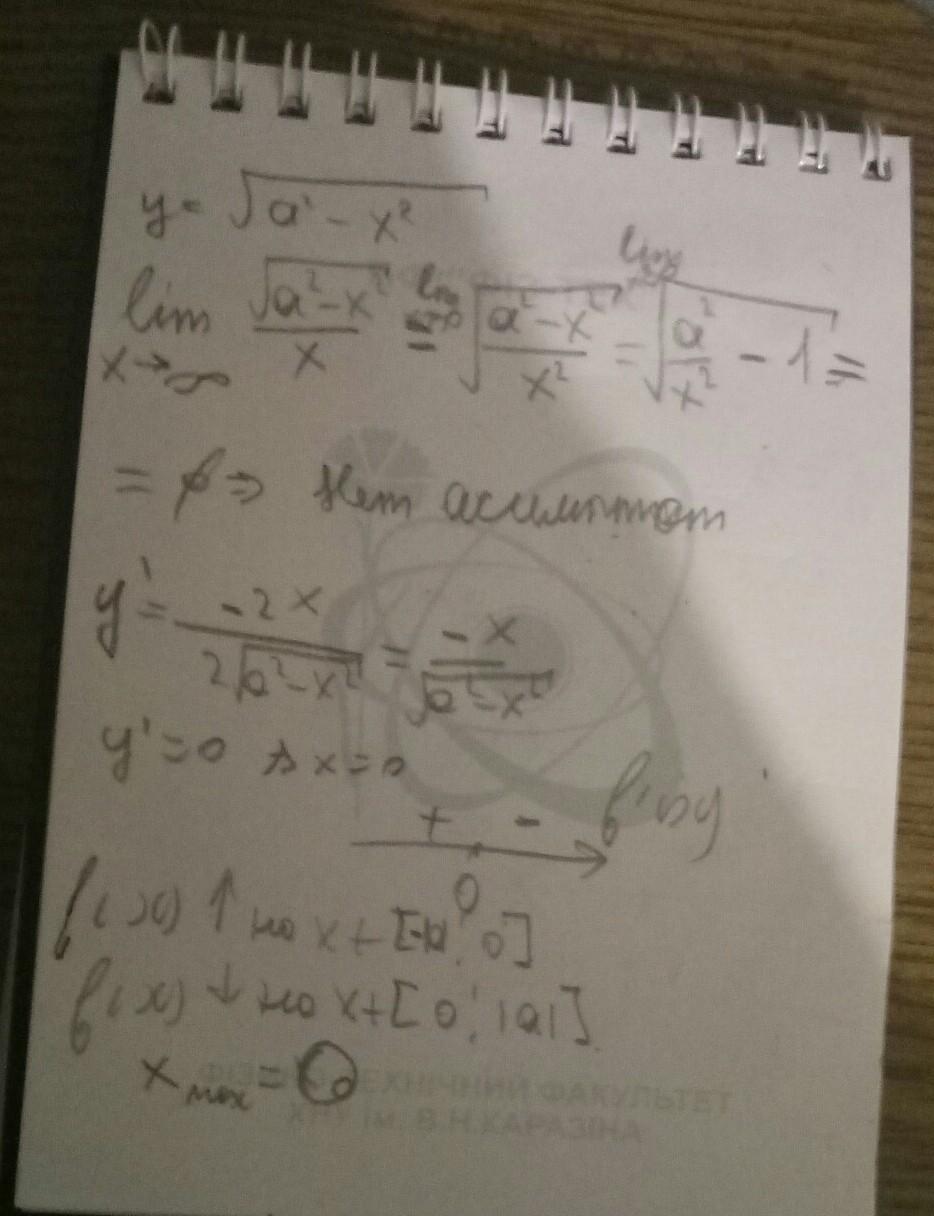 y = √(a² - x²)
lim x→∞ √(a² - x²)/x = lim x→∞ √((a² - x²)/x²) = lim √(a²/x² - 1) =
= ∅ ⇒ Нет асимптот
y' = -2x/(2√(a² - x²)) = -x/√(a² - x²)
y' = 0 x = 0
+ - f'(x)
0
f(x) ↑ на x ∈ [-|a|; 0]
f(x) ↓ на x ∈ [0; |a|]
x max = 0
ТЕХНІЧНИЙ ФАКУЛЬТЕТ
ХНУ ім. В.Н.КАРАЗІНА